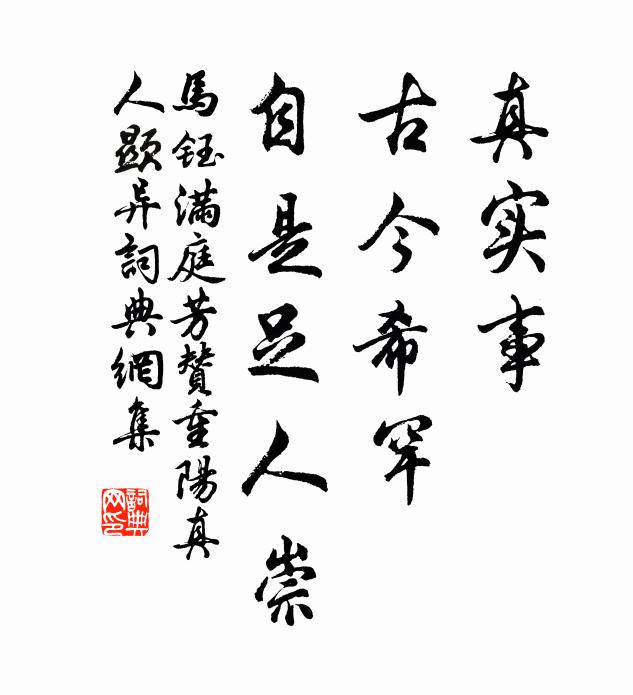 真实事
古今希罕
自是足人崇
馬鈺满庭芳贊重陽真
人顯异詞典網集
詞典网印